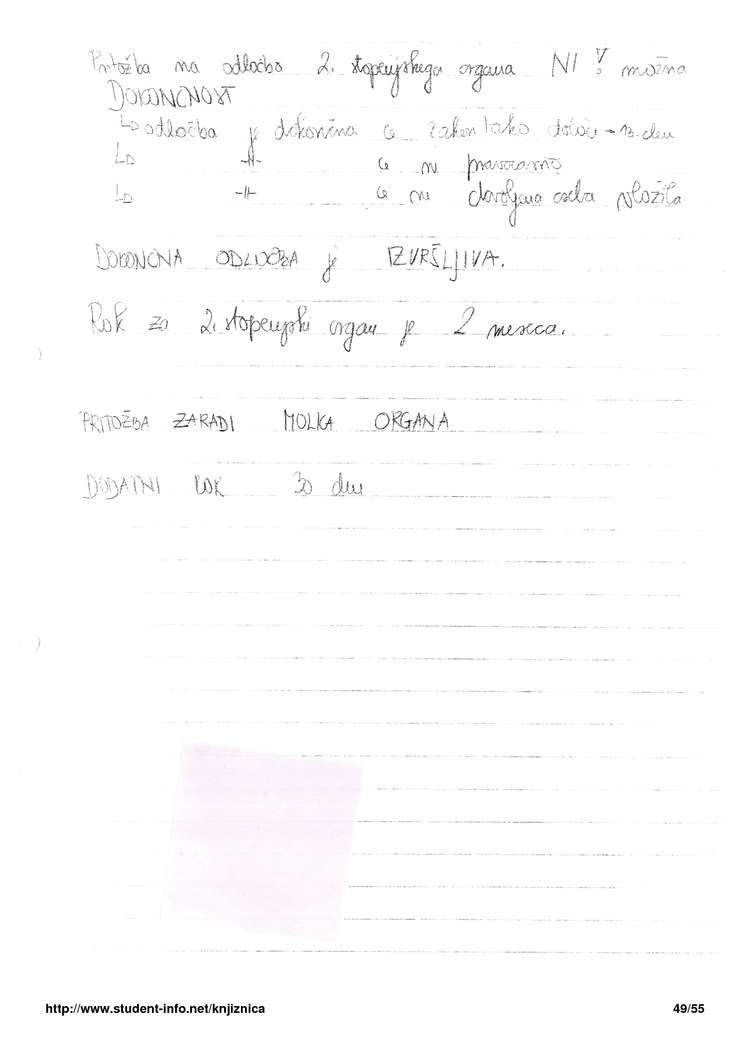 Pritožba na odločbo 2. stopenjskega organa NI možna
DOKONČNOST
↳ odločba je dokončna če zakon tako določi - 13. člen
↳ -||- če ni
↳ -||- če ni dovoljena oseba vložila
DOKONČNA ODLOČBA je IZVRŠLJIVA.
Rok za 2. stopenjski organ je 2 meseca.
PRITOŽBA ZARADI MOLKA ORGANA
DODATNI ROK 30 dni
http://www.student-info.net/knjiznica 49/55